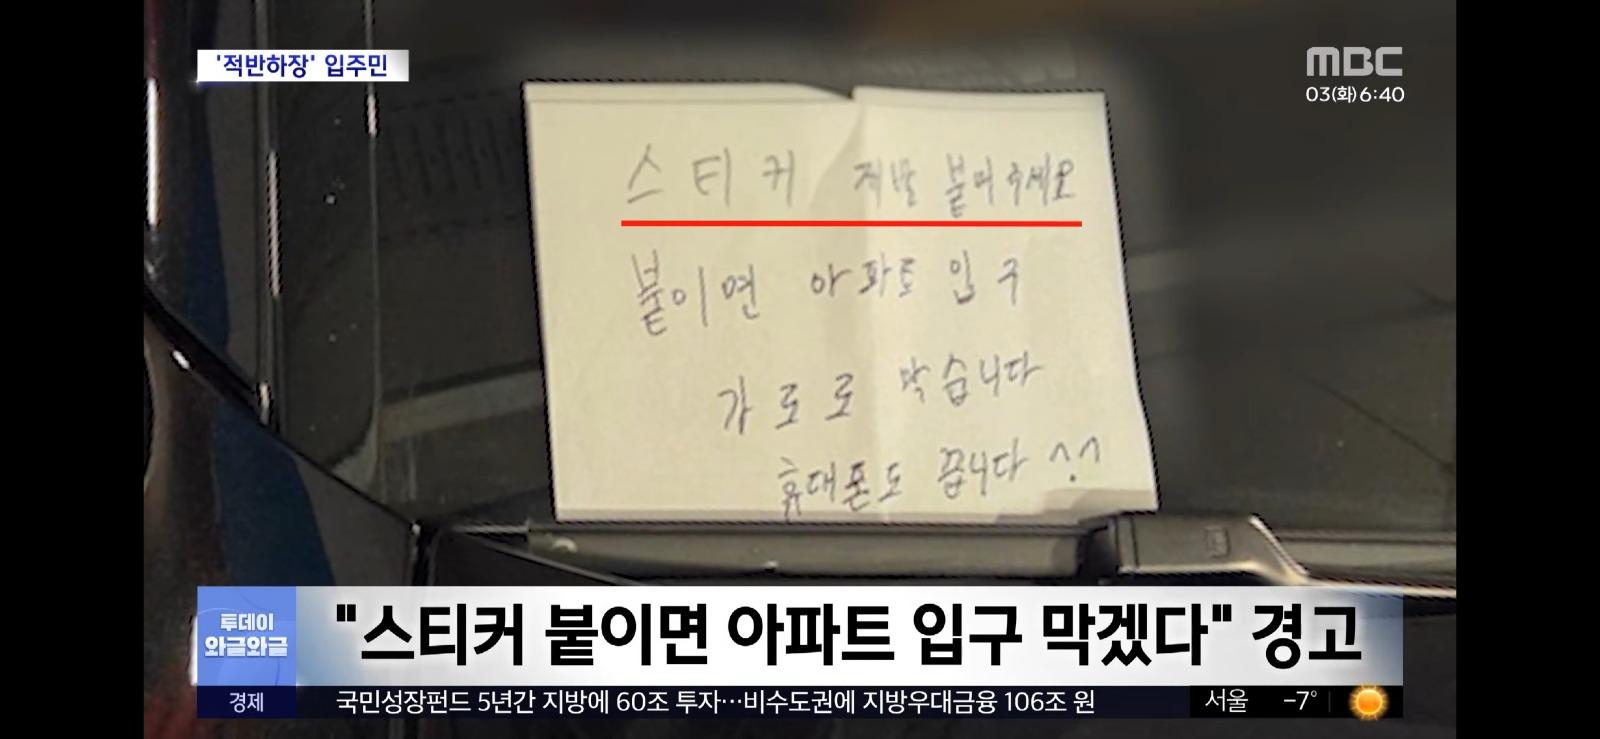 '적반하장' 입주민
MBC
03(화)6:40
스티커 제발 붙여주세요
붙이면 아파트 입구
가로로 막습니다
휴대폰도 끕니다 ^.^
"스티커 붙이면 아파트 입구 막겠다" 경고
투데이
와글와글
경제
국민성장펀드 5년간 지방에 60조 투자…비수도권에 지방우대금융 106조 원
서울 -7°